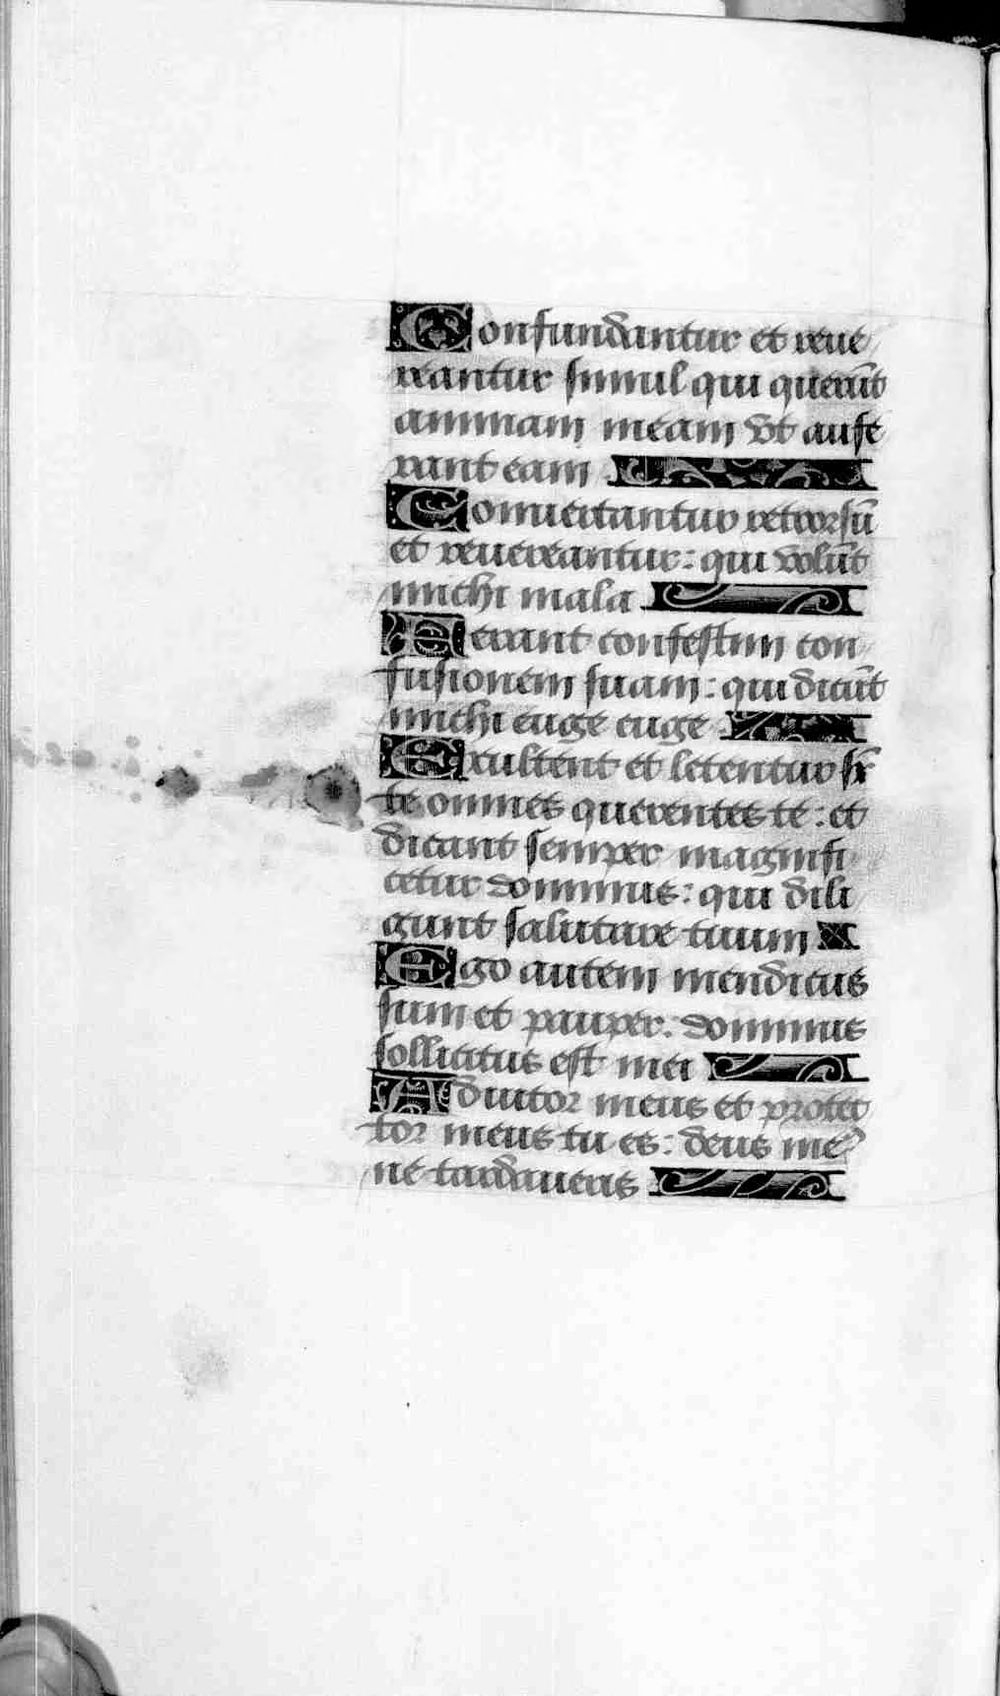 Confundantur et reue
reantur simul qui querũt
animam meam vt aufe
rant eam
Conuertantur retrorsũ
et reuereantur: qui volũt
michi mala
Ferant confestim con
fusionem suam: qui dicũt
michi euge euge
Exultent et letentur sr̃
te omnes querentes te: et
dicant semper magnifi
cetur dominus: qui dili
gunt salutare tuum
Ego autem mendicus
sum et pauper: dominus
sollicitus est mei
Adiutor meus et protec
tor meus tu es: deus meꝰ
ne tardaueris